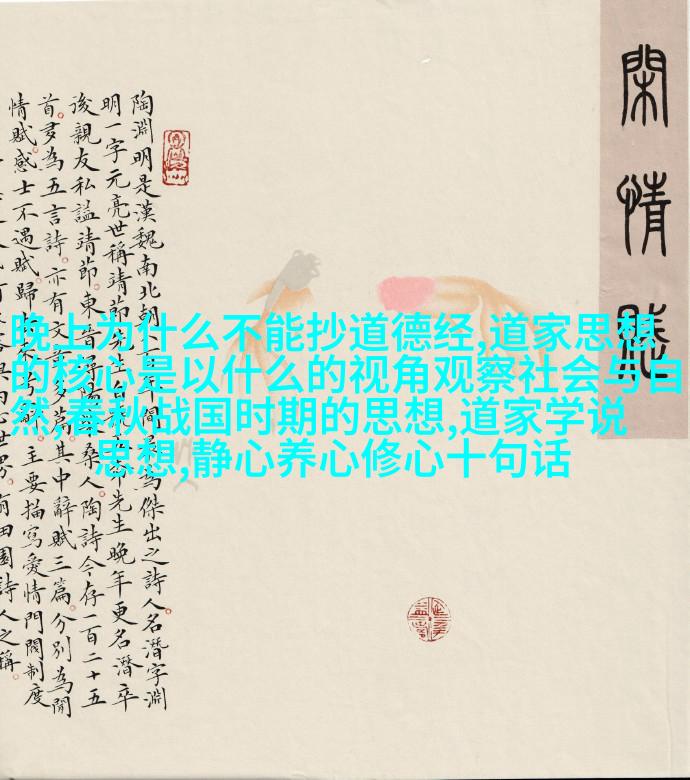 閑情賦
陶淵明是漢魏南北朝八百年間最為傑出之詩人名潛字淵
明一字元亮世稱靖節先生自先生晚年更名潛卒
後親友私諡靖節東晉潯陽柴桑人陶詩今存一百二十五
首多為五言詩亦有文章多篇其中辭賦三篇分別為閒
情賦感士不遇賦歸辭主要描寫愛情門閥制度
田園詩人之稱
晚上为什么不能抄道德经,道家思想
的核心是以什么的视角观察社会与自
然,春秋战国时期的思想,道家学说
思想,静心养心修心十句话